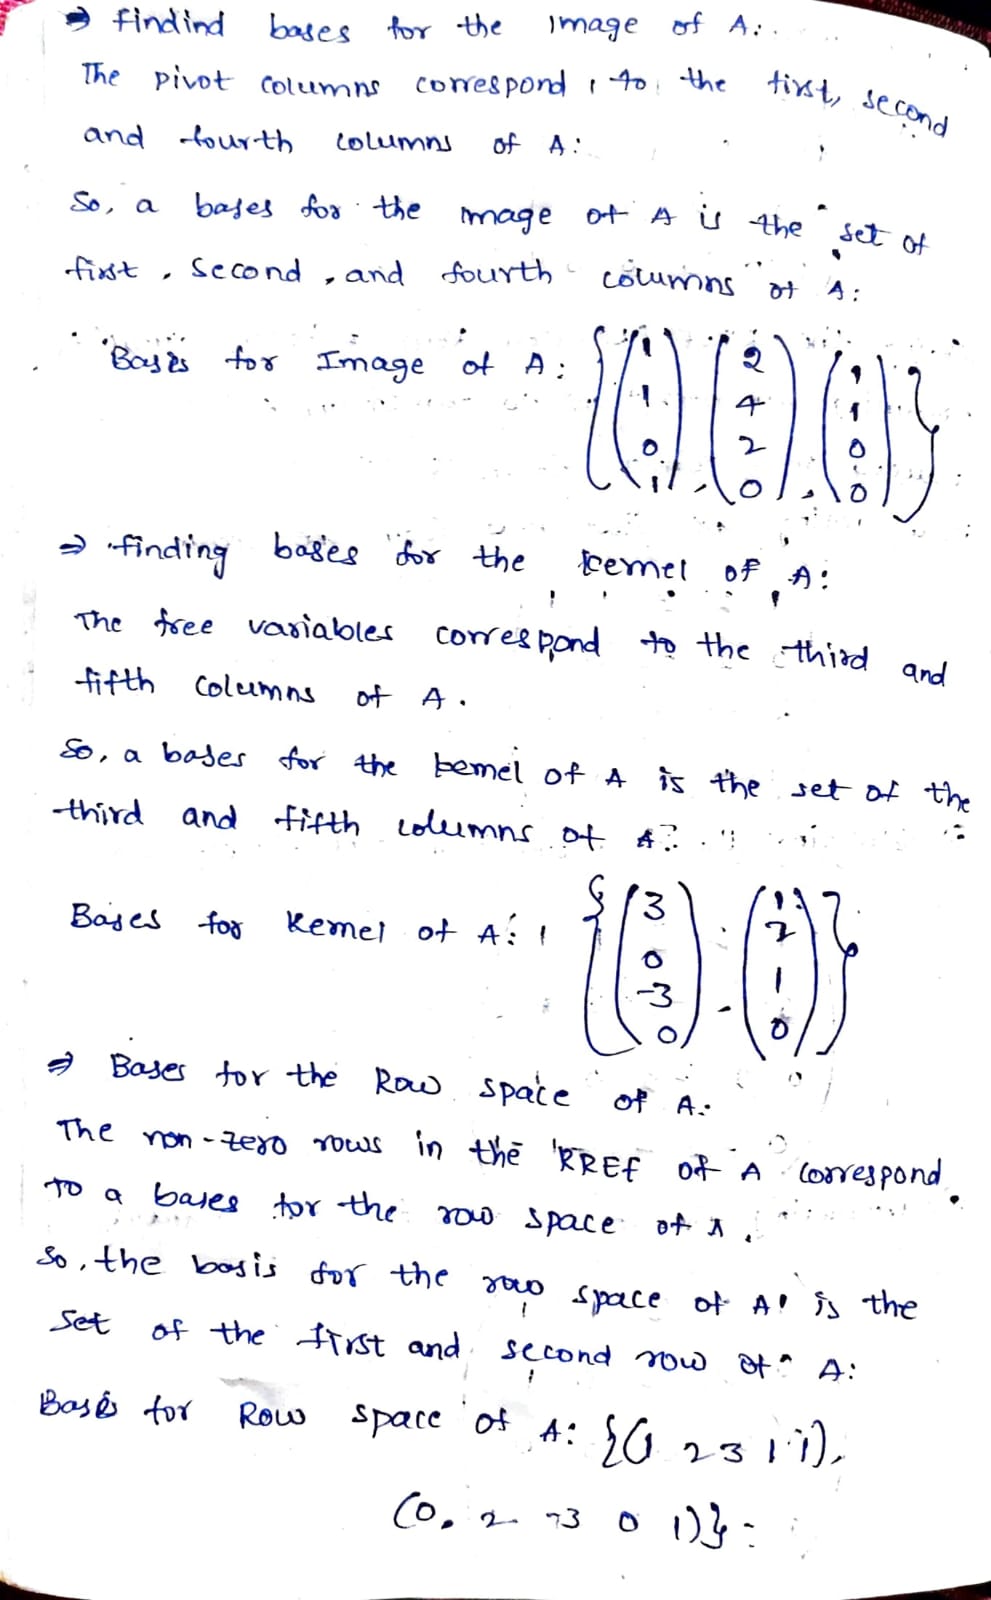 ⇒ findind bases for the image of A:.
The pivot columns correspond to the first, second
and fourth columns of A:
So, a bases for the image of A is the set of
first, second, and fourth columns of A:
Basis for Image of A: {(1 1 0 1), (2 4 2 0), (1 1 0 0)}
⇒ finding bases for the kernel of A:
The free variables correspond to the third and
fifth columns of A.
So, a bases for the kernel of A is the set of the
third and fifth columns of A:
Bases for Kernel of A: {(3 0 -3 0), (1 2 1 0)}
⇒ Bases for the Row space of A:
The non-zero rows in the RREF of A correspond
to a bases for the row space of A.
So, the basis for the row space of A is the
set of the first and second row of A:
Basis for Row space of A: {(1 2 3 1 1),
(0, 2 -3 0 1)}: